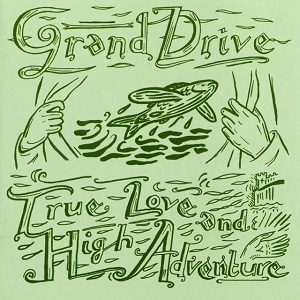 Grand Drive
True Love and
High Adventure